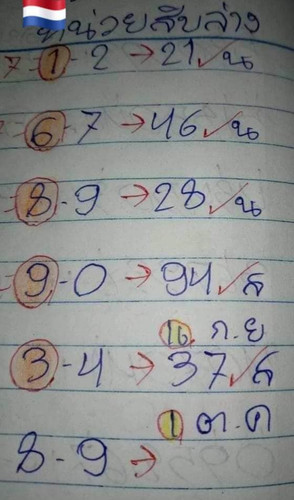 หน่วยสิบล่าง
7-1-2→21✓น
6-7→46✓น
8-9→28✓น
9-0→94✓ส
16 ก.ย
3-4→37✓ส
1 ต.ค
8-9→